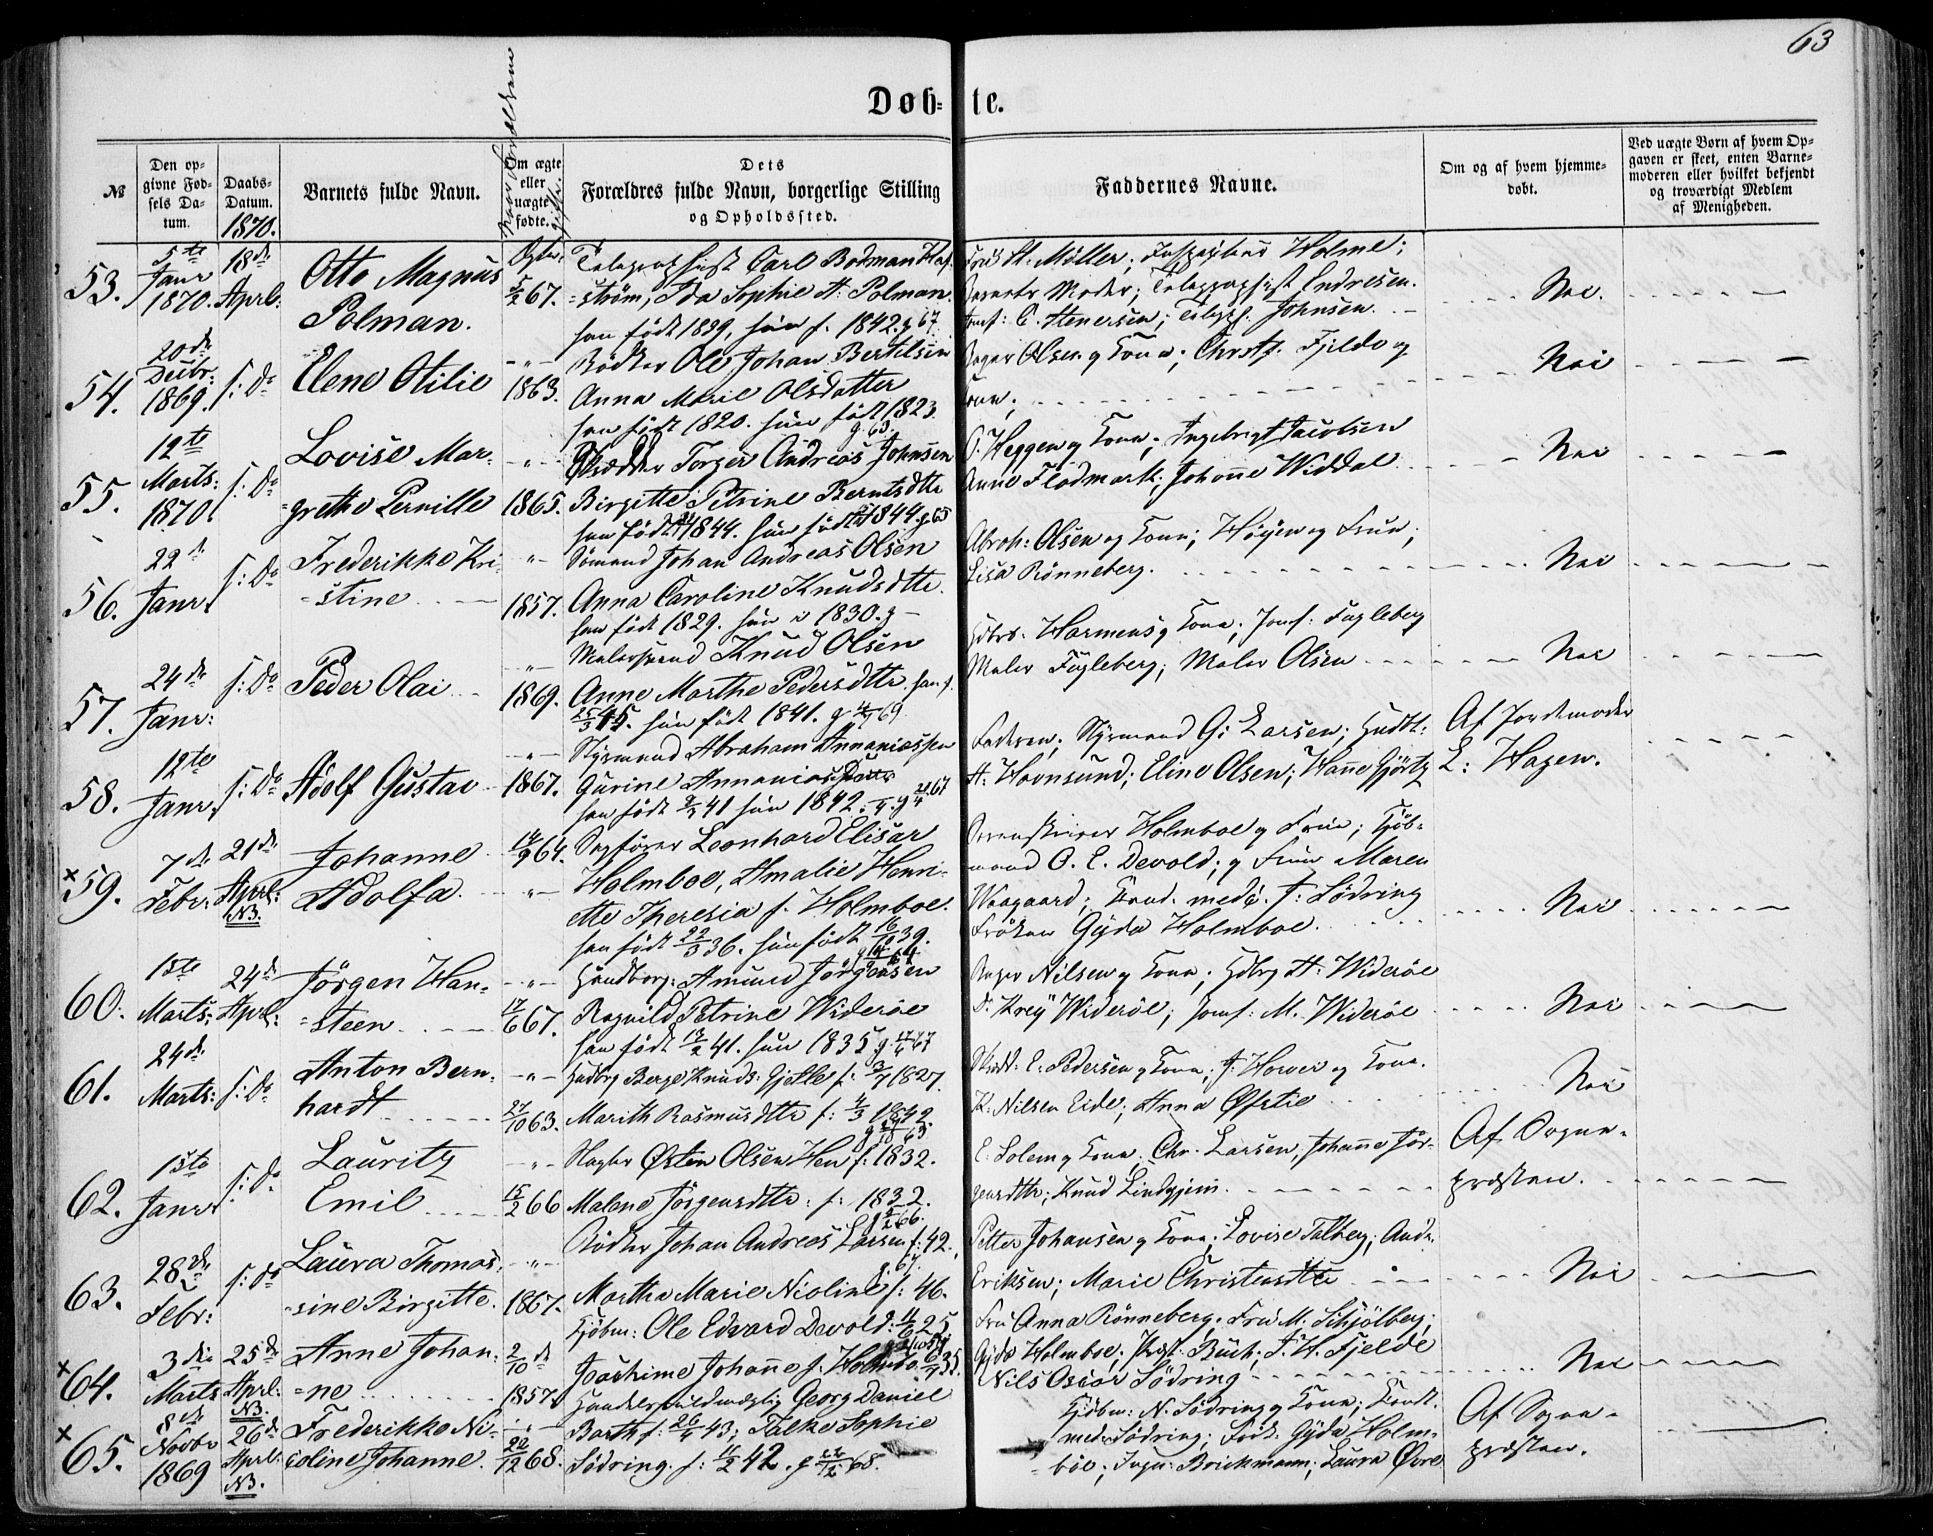 63
Døb-te.
№
Den op-
givne Fød-
sels Da-
tum.
Daabs-
Datum.
1870.
Barnets fulde Navn.
Om ægte
eller
uægte
fødte.
Dets
Forældres fulde Navn, borgerlige Stilling
og Opholdssted.
Faddernes Navne.
Om og af hvem hjemme-
døbt.
Ved uægte Børn af hvem Op-
gaven er skeet, enten Barne-
moderen eller hvilket bekjendt
og troværdigt Medlem
af Menigheden.
53.
5te
Janr
1870.
18de
Aprl:
Otto Magnus
Polman.
Ægte.
5/2 67.
Telegraphist Carl Bodman Haf-
=strøm, Ida Sophie A. Polman.
han født 1839, hun f. 1842. g 67
Fru St. Møller; Holme;
Barnets Moder; Telegraphist Endresen.
Jomf: C. Stenersen; Telegrf. Johnsen.
Nei.
54.
20de
Decbr:
1869.
s: Do
Elene Otilie
-"-
1863.
Bødker Ole Johan Bertelsen
Anna Marie Olsdatter
han født 1820. hun født 1823.
g. 63.
Bager Olsen og Kone; Chrstf. Fjelde og
Kone;
Nei
55.
12te
Marts:
1870
s: Do
Lovise Mar-
=grethe Pernille
-"-
1865.
Skrædder Torger Andreas Johnsen
Birgitte Petrine Berntsdttr
han født 1844. hun født 1844. g 65
O. Heggen og Kone; Ingebrigt Jacobsen
Anne Flodmark; Johanne Widdal
Nei
56.
22de
Janr.
s: Do
Frederikke Kri-
=stine
-"-
1857.
Sømand Johan Andreas Olsen
Anna Caroline Knudsdttr.
han født 1829. hun i 1830. g -
Abrah: Olsen og Kone; Høyen og Frue;
Lisa Rønneberg.
Nei
57.
24de
Janr:
s: Do
Peder Olai
-"-
1869.
Malersvend Knud Olsen
Anne Marthe Pedersdttr. han f.
25/3 45. hun født 1841. g 69
Hdbrb. Harmens og Kone; Jomf: Fugleberg
Maler Fugleberg; Maler Olsen
Nei
58.
12te
Janr.
s: Do
Adolf Gustav
-"-
1867.
Styrmand Abraham Annaniassen
Gurine Annanias Dattr
han født 41 hun 1842. g 67
Faderen; Styrmand G. Larsen; Hudtl:
H. Havnsund; Eline Olsen; Hanne Gjørtz
Af Jordemoder
L: Hagen.
×59.
7de
Febr.
21de
Aprl:
NB.
Johanne
Adolfa.
14/9 64.
-"-
Sagfører Leonhard Elisar
Holmboe, Amalie Henri-
ette Theresia f. Holmboe.
han født 22/3 36. hun født 16 39.
g 64
Sorenskriver Holmboe og Frue; Kjøb-
mand O. E. Devold; og Frue Maren
Waagaard; Kand. med: J: Sødring
Frøken Gyda Holmboe.
Nei
60.
15te
Marts:
24de
Aprl:
Jørgen Han-
=steen
-"-
17/6 67.
Haandbrg: Amund Jørgensen
Ragnild Petrine Widerøe
han født 13/2 41. hun 1835 g 17/6 67
Bager Nilsen og Kone; Hdbrg H: Widerøe
D: Krey Widerøe; Jomf: M. Widerøe
Nei
61.
24de
Marts:
s: Do
Anton Bern-
hardt
-"-
27/10 63.
Hudbrg Berge Knuds: Gjelle f: 1827.
Marith Rasmusdttr f: 4/3 1842.
g 27/10 63
Skrdd: E: Pedersen og Kone; J: Harver og Kone.
K: Nilsen Eide; Anna Øfstie
Nei
62.
15te
Janr
s: Do
Lauritz
Emil
-"-
15/2 66
Slagter Østen Olsen Hen f: 1832.
Malene Jørgensdttr: f: 1832.
g 66.
E. Solem og Kone; Chr. Larsen; Johanne Jør-
gensdttr; Knud Lindgjem.
Af Sogne-
præsten.
63.
28de
Febr:
s: do
Laura Thomas-
=sine Birgitte.
-"-
1867.
Bødker Johan Andreas Larsen f: 42.
g. 67.
Marthe Marie Nioline f: 46.
Petter Johansen og Kone; Lovise Talberg; Andr.
Eriksen; Marie Christensdttr
Nei
×64.
3die
Marts
25de
Aprl:
NB.
Anne Johan-
=ne
2/10 de
1857
Kjøbm: Ole Edvard Devold: 4/6 25
Joachime Johanne f. Holmbo. 35.
Fru Anna Rønneberg; Fru M. Schjølberg;
Gyda Holmboe; Prgst. Buch; J. H. Fjelde
Nils Oscar Sødring
Nei
×65.
8de
Novbr
1869
26de
Aprl:
NB.
Frederikke Ni-
coline Johanne.
-"-
22/12 68.
Handelsfuldmægtig Georg Daniel
Barth f: 26/4 43; Falke Sophie
Sødring. f: 11/2 42. g 22/12 68.
Kjøbm: N. Sødring og Kone; Kandt.
med: Sødring; Frøk. Gyda Holm-
=boe; Ingn: Brickmann; Laura Øvre
Af Sogne-
præsten.